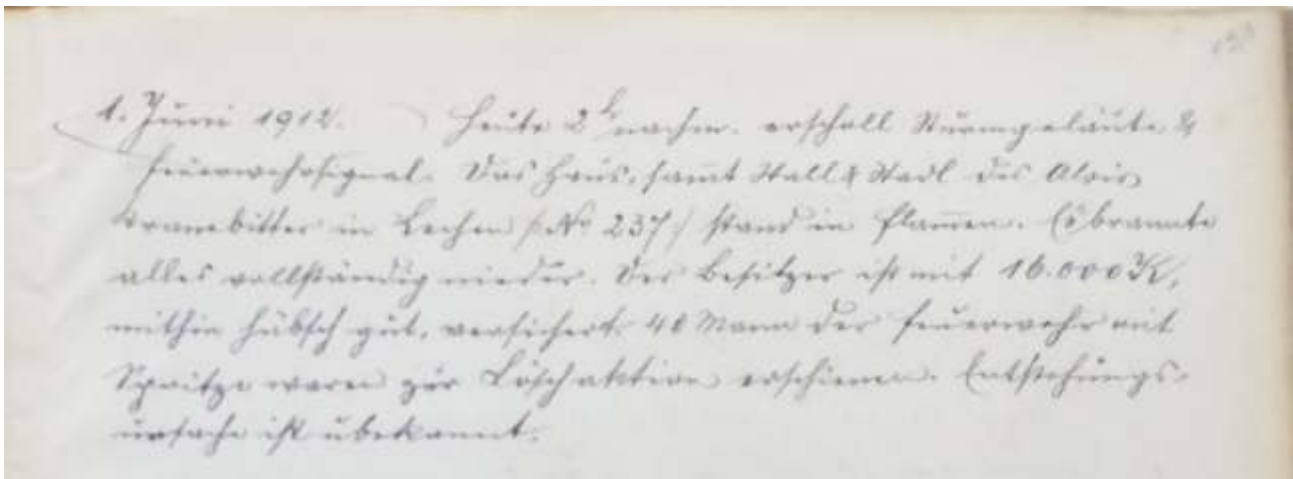 1. Juni 1912. Heute 2 h nachm. erscholl Sturmgeläute &
Feuerwehrsignal. Das Haus, sammt Stall & Stadl des Alois
Kranebitter in Lechen /:No 237:/ stand in Flam̄en. Es brannte
alles vollständig nieder. Der Besitzer ist mit 16.000 K,
mithin hübsch gut, versichert. 40 Mann der Feuerwehr mit
Spritze waren zur Löschaktion erschienen. Entstehungs-
ursache ist ubekannt.